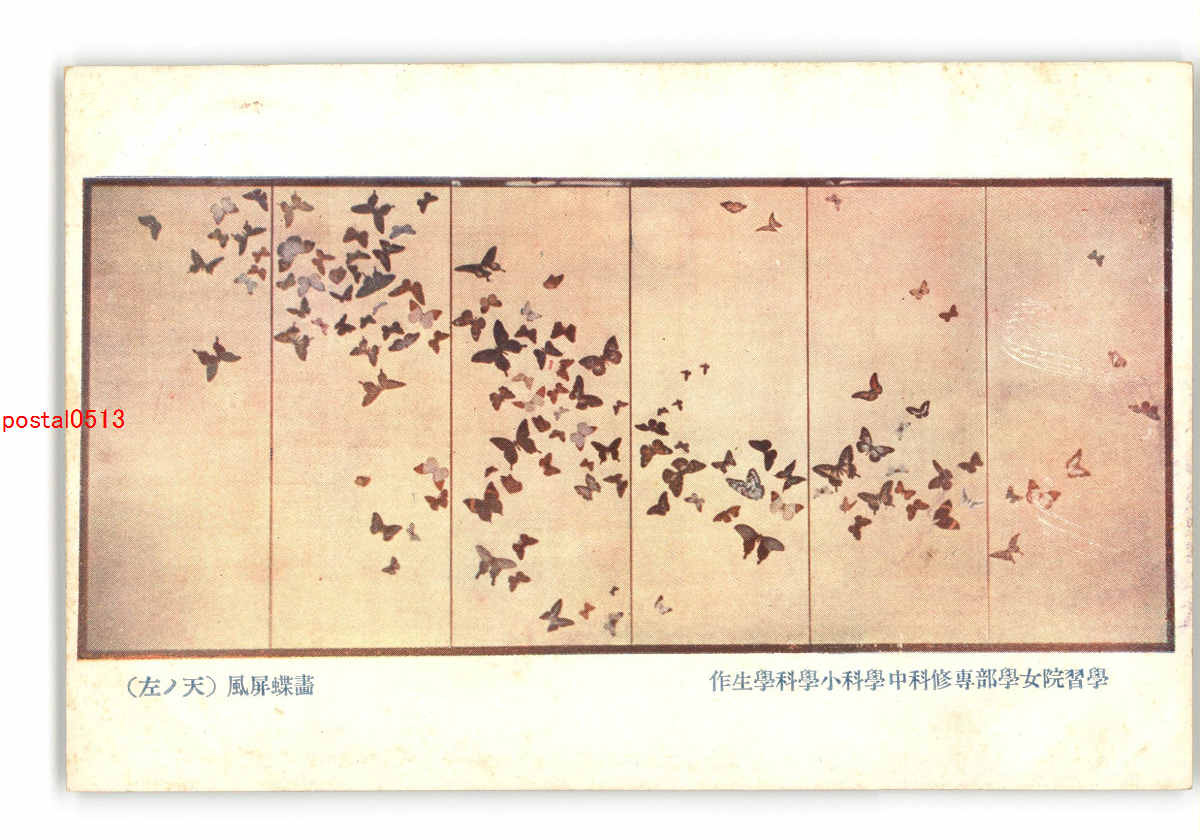 學習院女學部專修科中學科小學科學生作
畫蝶屏風（天ノ左）
postal0513